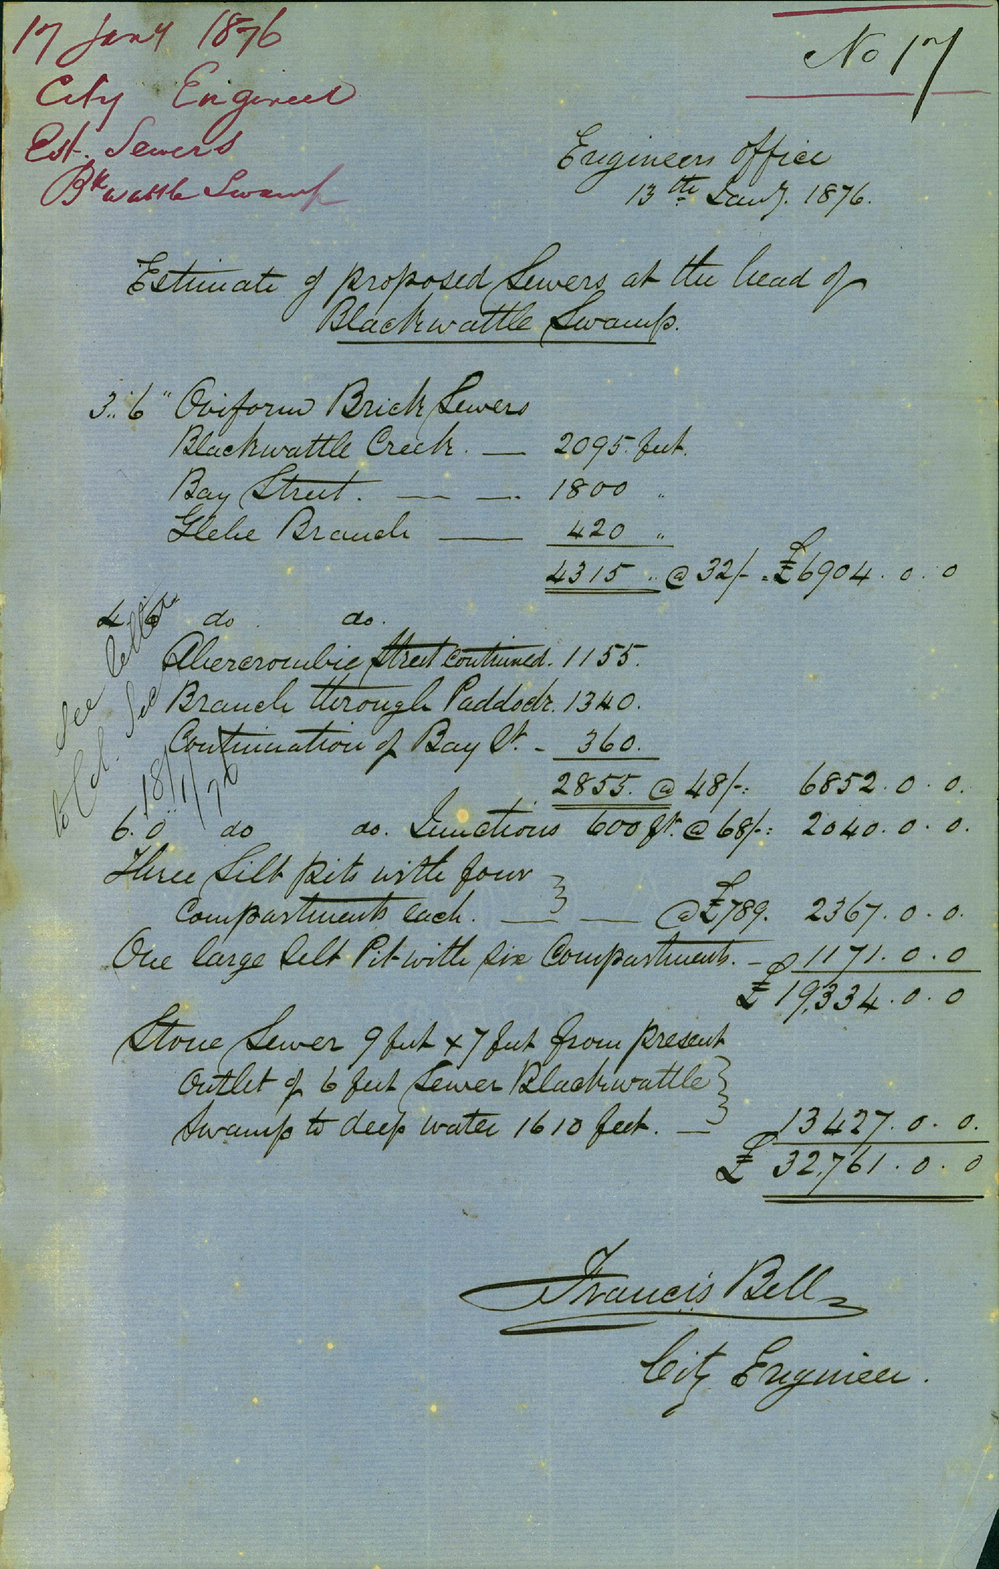 17 Jany 1876
City Engineer
Est. Sewers
Bk wattle Swamp
No 17
Engineers Office
13th Jany. 1876.
Estimate of proposed Sewers at the head of
Blackwattle Swamp.
3.. 6" Oviform Brick Sewers
Blackwattle Creek. — 2095. feet.
Bay Street. — — 1800 "
Glebe Branch — 420 "
4315 " @ 32/- = £6904. 0. 0
4. 6 do do.
Abercrombie Street continued. 1155.
Branch through Paddock. 1340.
Continuation of Bay St. - 360.
2855. @ 48/-: 6852. 0. 0.
6. 0" do do. Junctions 600 ft. @ 68/-: 2040. 0. 0.
Three Silt pits with four
Compartments each. — — @ £789. 2367. 0. 0.
One large Silt Pit with six Compartments. - 1171. 0. 0
£ 19,334. 0. 0
Stone Sewer 9 feet x 7 feet from present
Outlet of 6 feet Sewer Blackwattle
Swamp to deep water 1610 feet. — 13427. 0. 0.
£ 32,761. 0. 0
See letter
to Col. Sec
18/1/76
Francis Bell
City Engineer.